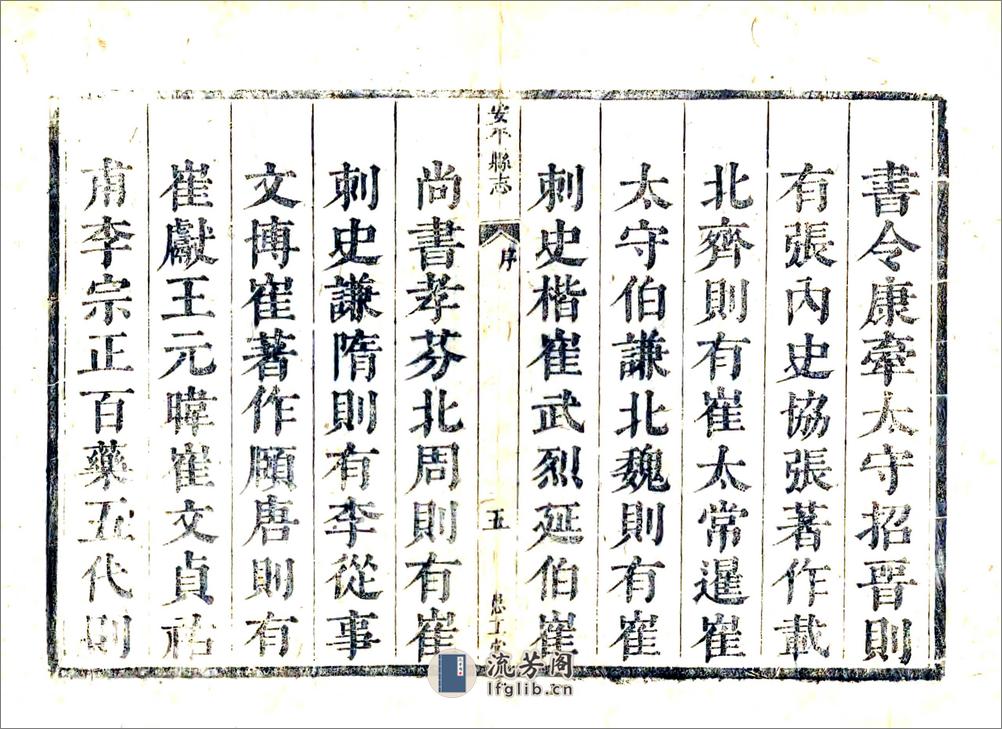 書令康牽太守招晋則
有張内史協張著作載
北齊則有崔太常暹崔
太守伯謙北魏則有崔
刺史楷崔武烈延伯崔
安平縣志
序
五
尚書孝芬北周則有崔
刺史謙隋則有李從事
文博崔著作頤唐則有
崔獻王元暐崔文貞祐
甫李宗正百藥五代則
流芳阁
lfglib.cn